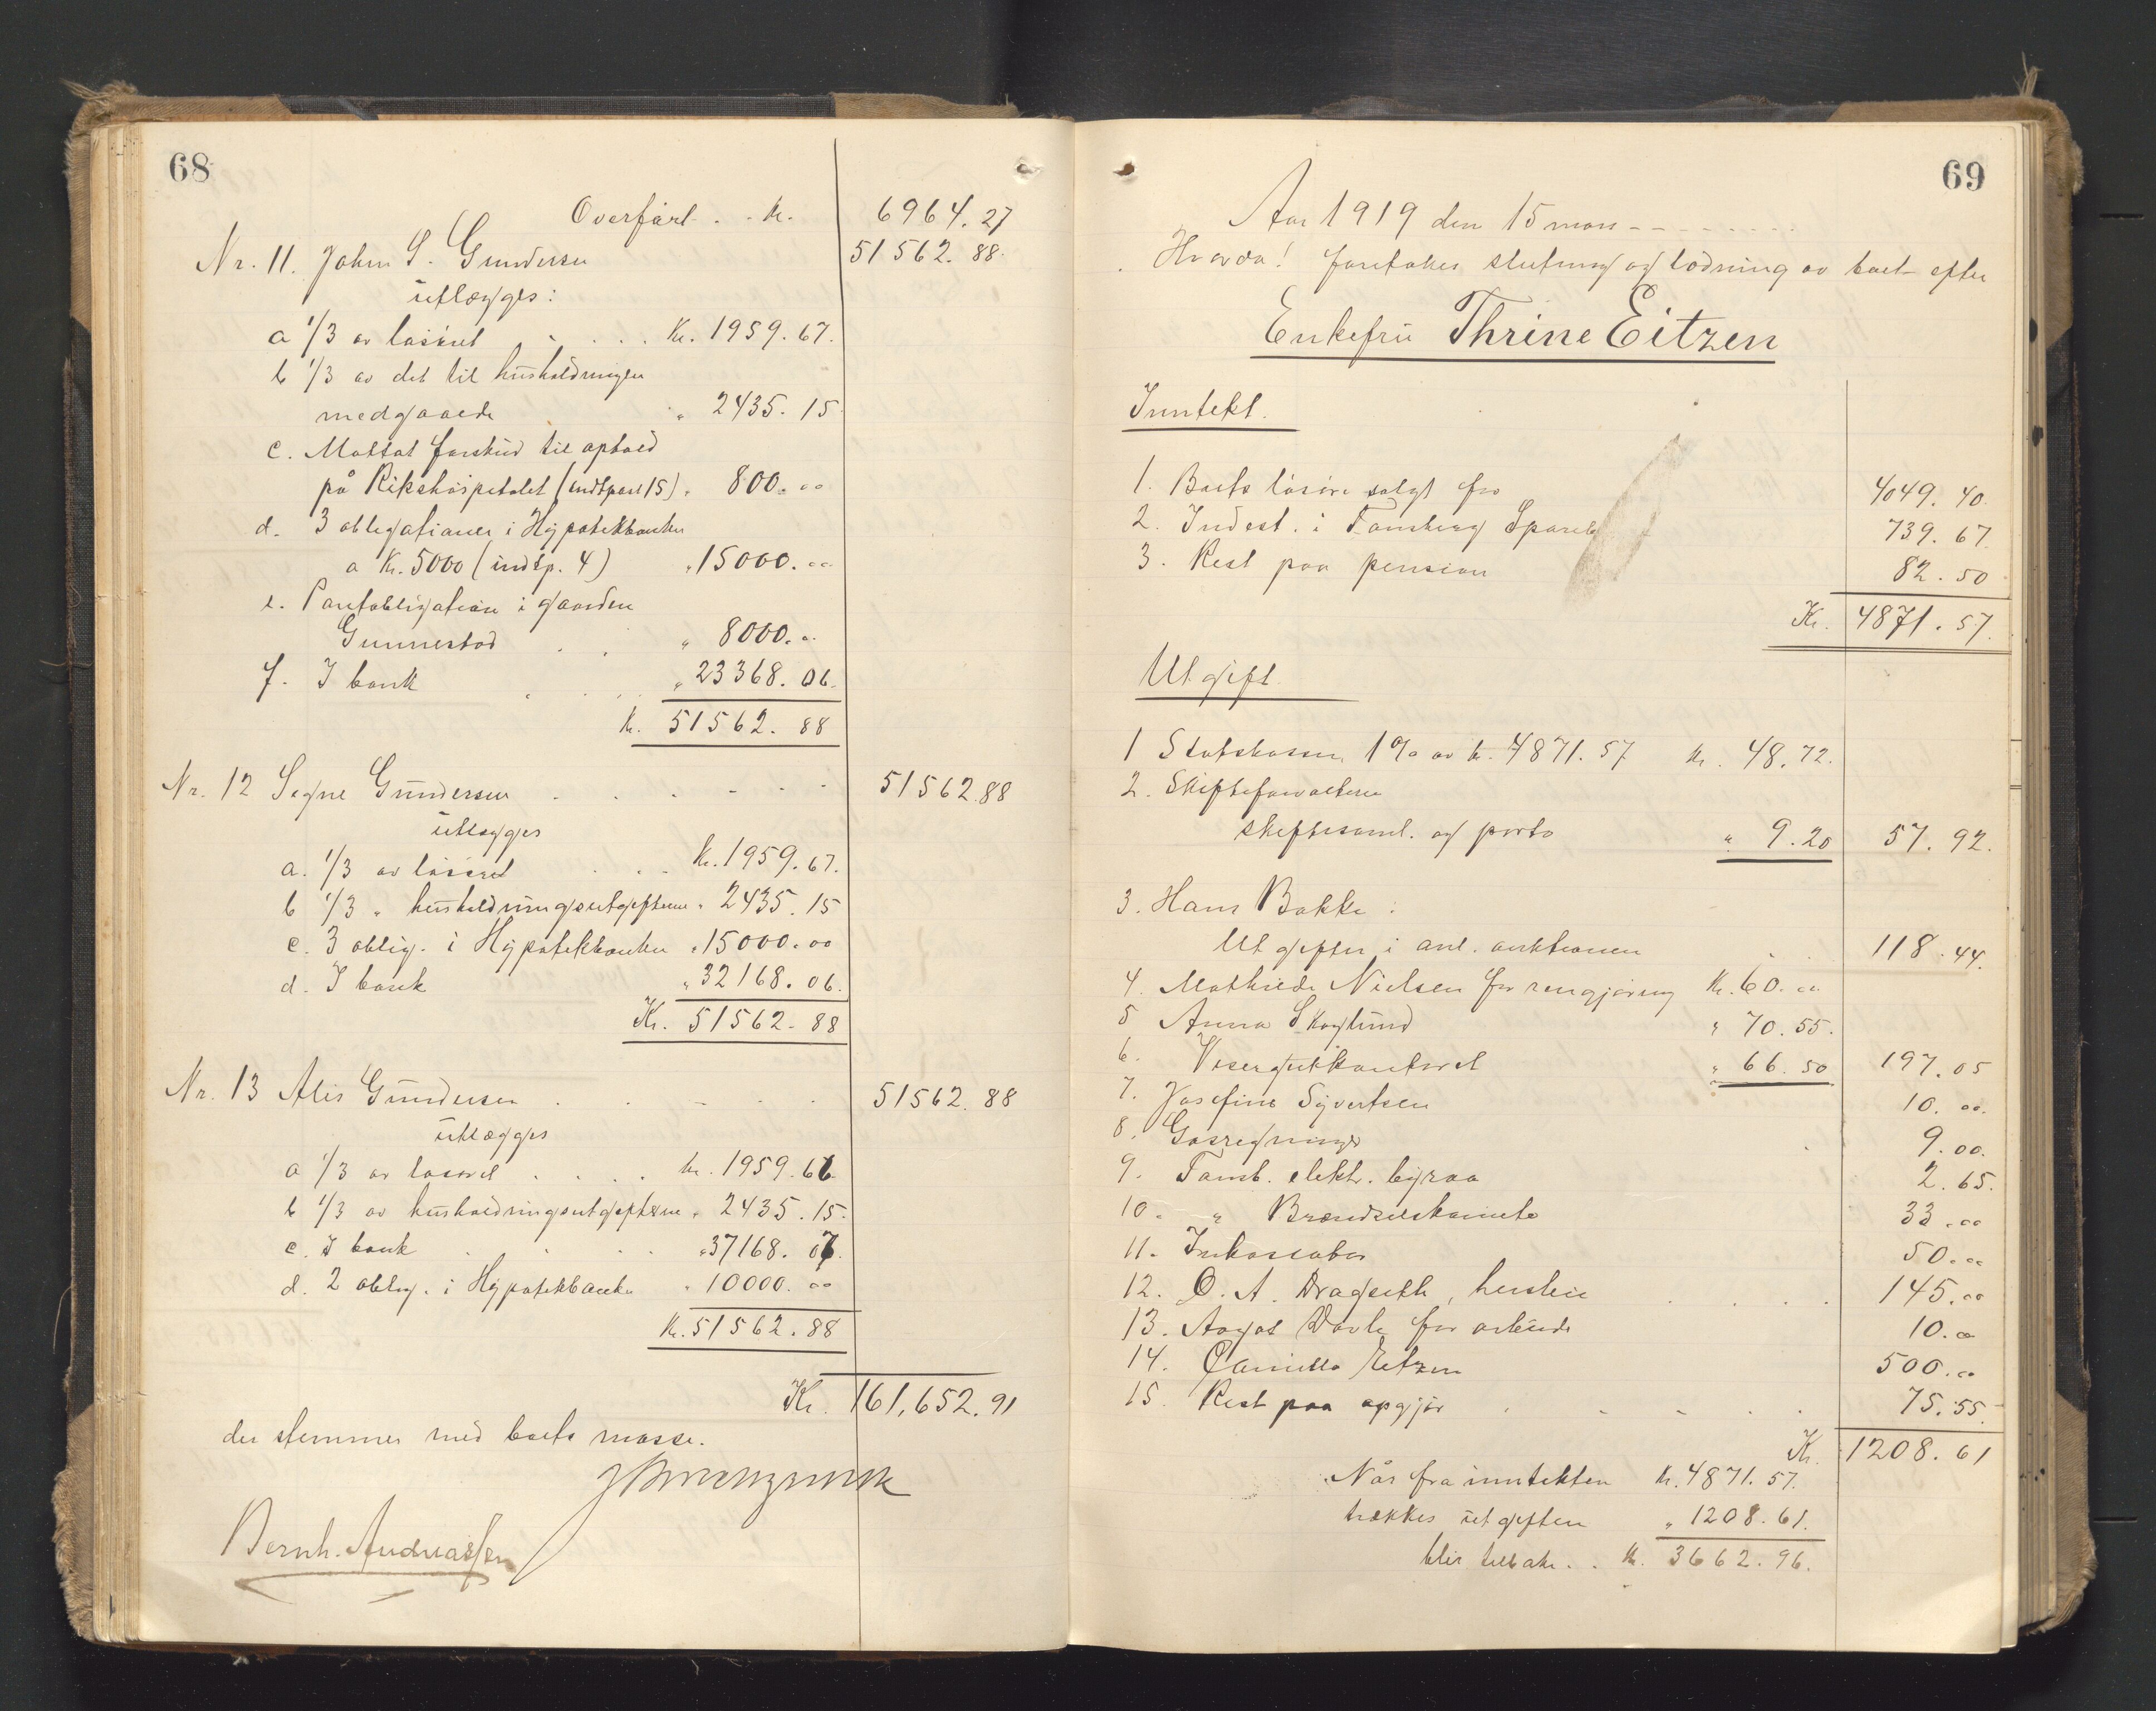 68
Overført . . kr. 6964.27
Nr. 11. Johan S. Gundersen 51562.88.
utlægges:
a 1/3 av løsøret . . . Kr. 1959.67.
b 1/3 av det til husholdningen
medgaaede " 2435.15
c. Mottat forskud til ophold
på Rikshospitalet (indtpost 15) " 800.00
d. 3 obligationer i Hypotekbanken
a Kr. 5000 (indtp. 4) " 15000.00
e. Pantobligation i gaarden
Gunnestad . . " 8000.00
f. I bank . . . " 23368.06.
kr. 51562.88
Nr. 12 Signe Gundersen . . . . . . 51562.88
utlægges
a. 1/3 av løsøret . . . kr. 1959.67.
b 1/3 " husholdningsutgifterne " 2435.15
c. 3 oblig. i Hypotekbanken " 15000.00
d. I bank " 32168.06.
Kr. 51562.88
Nr. 13 Alis Gundersen . . . . . 51562.88
utlægges
a 1/3 av løsøret . . . . kr. 1959.66
b 1/3 av husholdningsutgifterne " 2435.15.
c. I bank . . . " 37168.07.
d. 2 oblig. i Hypotekbanken " 10000.00
Kr. 51562.88
Kr. 161,652.91
der stemmer med boets masse.
Bernh. Andreassen
69
Aar 1919 den 15 mars - - - - -
Hvorda! foretokes slutning og lodning av boet efter
Enkefru Thrine Eitzen
Inntekt.
1. Boets løsøre solgt for 4049.40.
2. Indest. i Tønsberg Spareb 739.67.
3. Rest paa pension 82.50
Kr. 4871.57.
Utgift
1 Statskassen 1% av kr. 4871.57 kr. 48.72.
2. Skifteforvalteren
skiftesaml. og porto " 9.20 57.92.
3. Hans Bakke :
Utgifter i anl. auktionen . . 118.44.
4. Mathilde Nielsen for rengjøring kr. 60.00
5 Anna Skoglund " 70.55.
6. Visergutkontoret " 66.50 197.05
7. Josefine Syvertsen 10.00.
8. Gasregninger . 9.00.
9. Tønsb. elektr. byraa 2.65.
10. " Brændselskomite 33.00
11. Inkassator 50.00
12. O. A. Dragseth, husleie . . . . 145.00
13. Aagot for arbeide 10.00
14. Camilla Eitzen 500.00
15. Rest paa opgjør . . . . . 75.55.
Kr. 1208.61
Når fra inntekten kr. 4871.57.
trækkes utgiften " 1208.61.
blir tilbake . . kr. 3662.96.